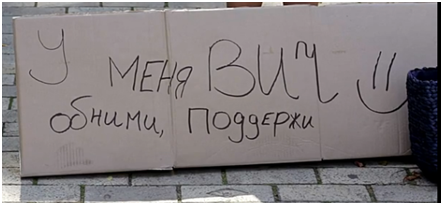 У МЕНЯ ВИЧ =)
обними, поддержи